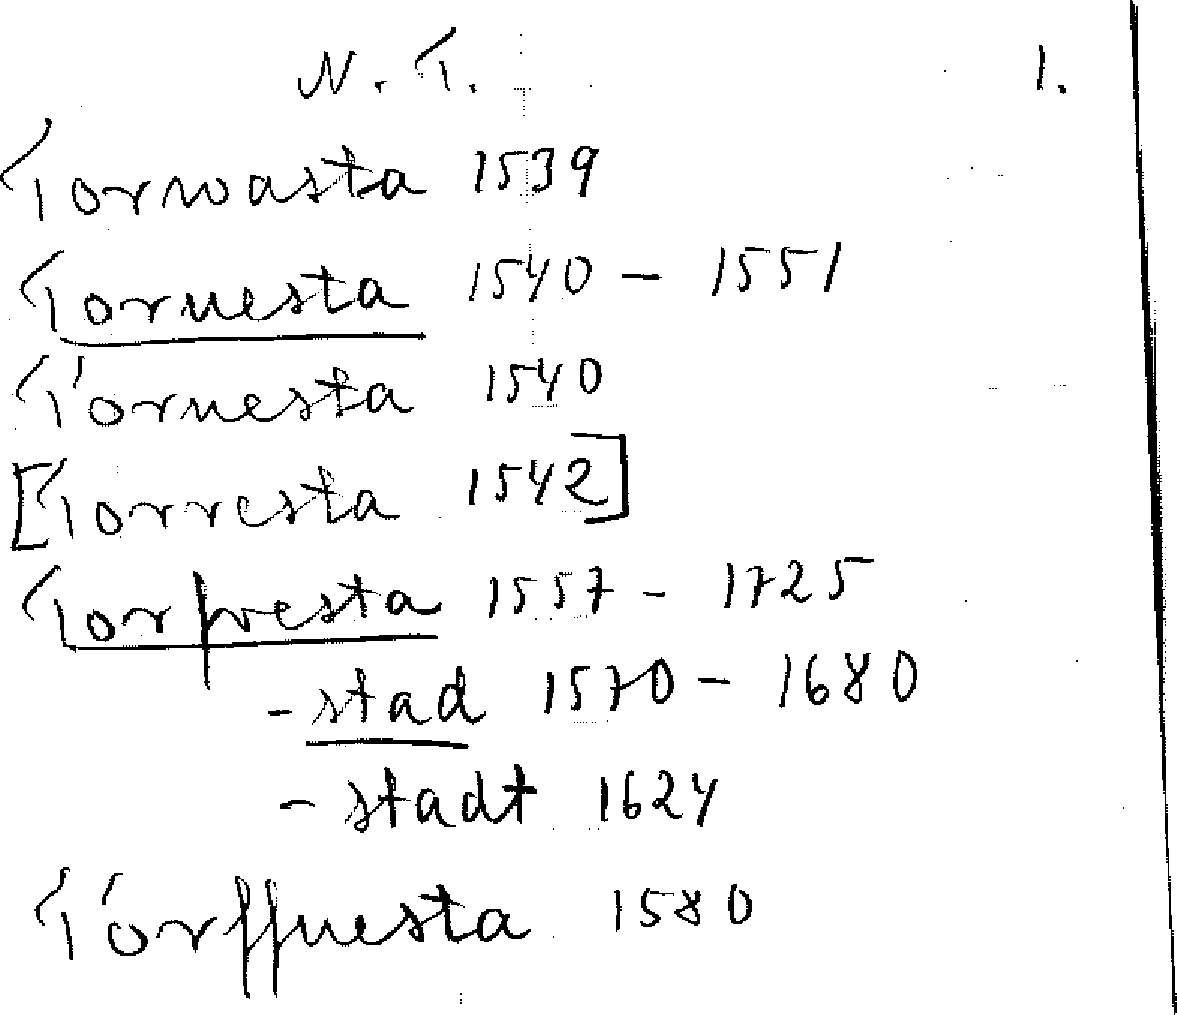 N. T. 1.
Torwasta 1539
Toruesta 1540 - 1551
Tóruesta 1540
[Torresta 1542]
Torpvesta 1557 - 1725
- stad 1570 - 1680
- stadt 1624
Tórffuesta 1580